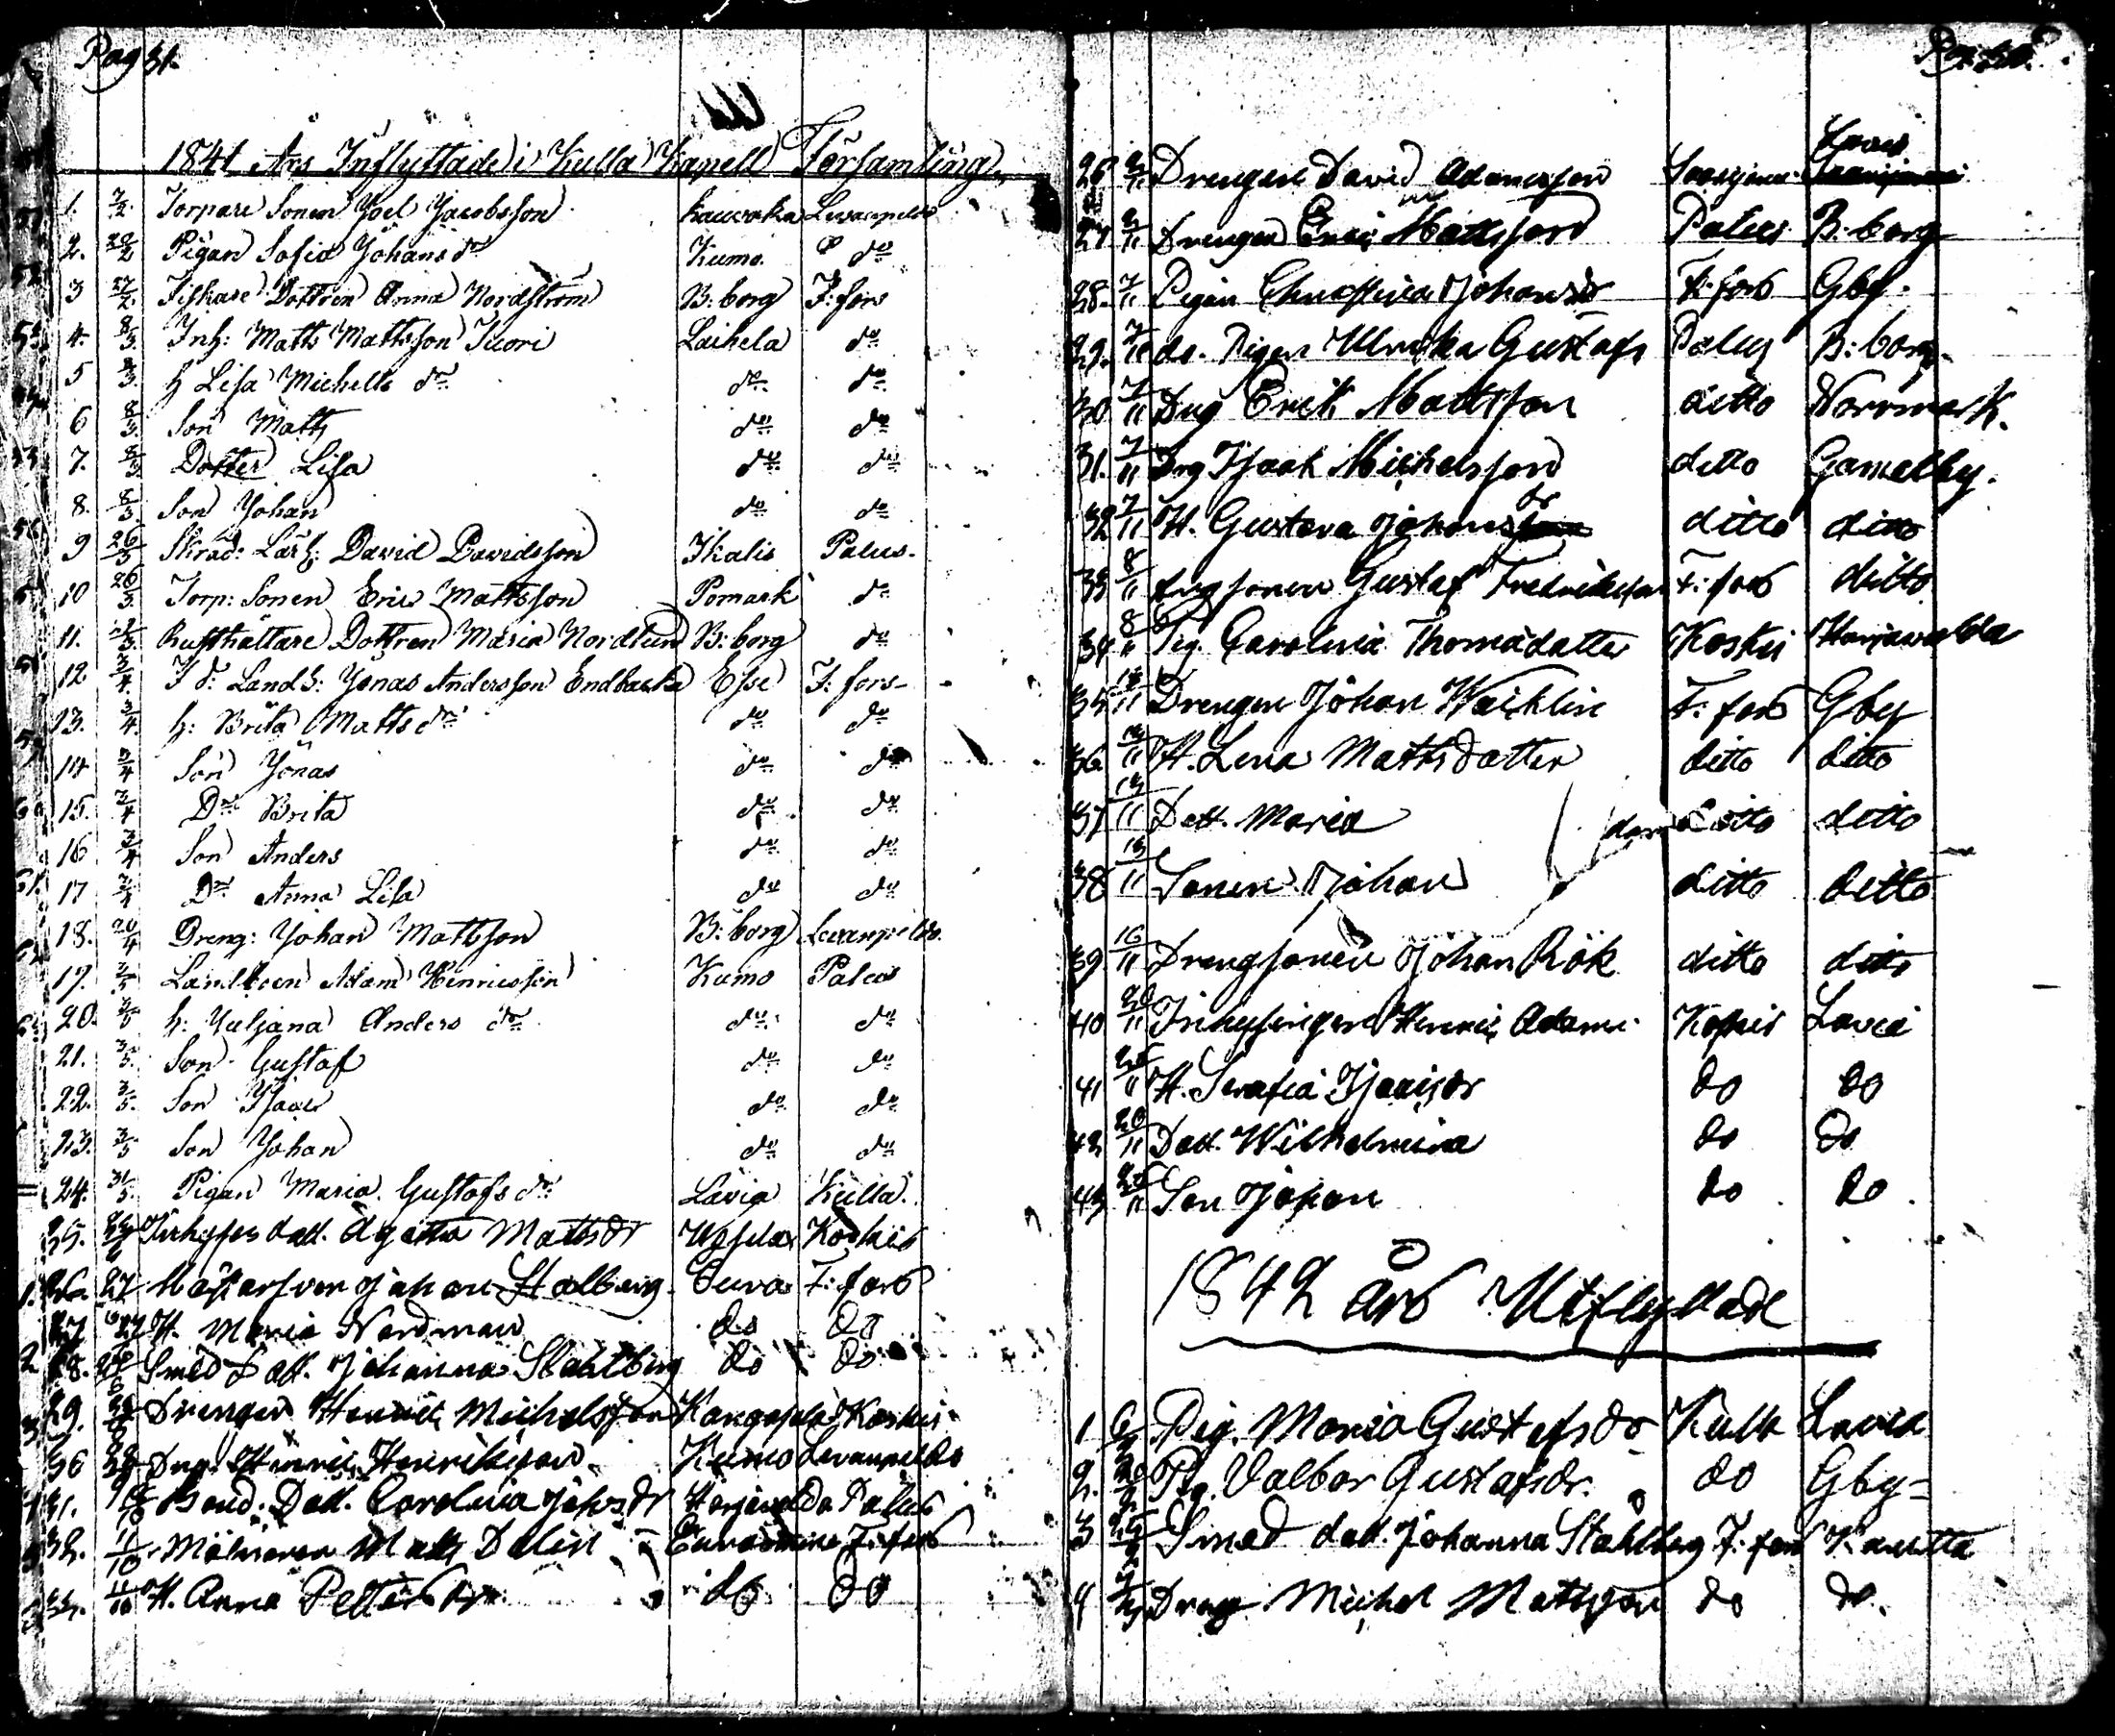 Pag 31.
1841 Års Inflyttade i Kulla Kapell Församling
1. 7/2. Torpare Sonen Joel Jacobsson Kauvatsa Levanpelto
2. 22/2 Pigan Sofia Johans dr Kumo. do
3 27/2. Fiskare Dottren Anna Nordström B:borg F:fors
4. 8/3. Inh: Matts Mattsson Tuori Laihela do
5 8/3. h Lisa Michels dr do do
6 8/3. Son Matts do do
7. 8/3 Dotter Lisa do do
8. 8/3. Son Johan do do
9 26/3 Skräd: Lärl: David Davidsson Ikalis Palus.
10 26/3. Torp: Sonen Eric Mattsson Pomark do
11. Rusthållare Dottren Maria Nordlund B:borg do
12 3/4. Landb: Jonas Andersson Endbacka Esse F:fors
13. 3/4. h: Brita Matts dr do do
14 3/4 Son Jonas do do
15. 3/4 Dr Brita do do
16 3/4 Son Anders do do
17 3/4 Dr Anna Lisa do do
18. 20/4 Dreng: Johan Mattsson B:borg Levanpelto.
19. 3/5 Landboen Adam Henricsson Kumo Palus
20. 3/5 h: Juljana Anders dr do do
21. 3/5. Son Gustaf do do
22. 3/5. Son Isaac do do
23. 3/5 Son Johan do do
24. 31/5. Pigan Maria Gustafs dr Lavia Kulla.
25. Inhyses dott. Agatha Matts dr Koskis
26. 27 Johan Stålberg Eura F:fors
27 27 H. Maria Nordman do do
28. Smed Dott. Johanna Stahlberg do do
29. Drengen Henric Michelsson Kangasala Koskis
30 Drg. Henric Henriksson Kumo Levanpelto
31. Bond. Dott. Carolina Johs dr Harjavalda Palus
32. 11/10 Mölnaren Matts Dalin Euraåminne F:fors
33. 11/10 H. Anna Petters dr do do
26 Drengen David Adamsson Lavia
27 Drengen Eric Mattsson Palus B:borg
28. 7/11 Pigan Christina Johans dr F:fors Gby.
29. 7/11 do. Pigan Ulrika Gustafs Palus B:borg.
30 7/11 Drg Erik Mattsson ditto Norrmark.
31. 7/11 Drg Isaak Michelsson ditto Gamelby.
32 7/11 H. Gustava Johans dr ditto ditto
33 8/11 Drg sonen Gustaf Fredriksson F:fors ditto
34 8/11 Pig. Carolina Thomadatter Koskis Harjavalda
35 13/11 Drengen Johan Waihlin F:fors Gby
36 13/11 H. Lena Mattsdotter ditto ditto
37 13/11 Dott. Maria ditto ditto
38 13/11 Sonen Johan ditto ditto
39 16/11 Drengsonen Johan Rök ditto ditto
40 20/11 Inhysingen Henric Adams. Koskis Lavia
41 20/11 H. Serafia Isacs dr do do
42 20/11 Dott. Wilhelmina do do
43 20/11 Son Johan do do.
1842 års Utflyttade
1 Pig. Maria Gustafs dr Kulla Lavia
2. Pig. Valbor Gustafs dr. do Gby
3 Smed dott. Johanna Stahlberg F:fors Kauttua
4 Dreng Michel Mattsson do do.